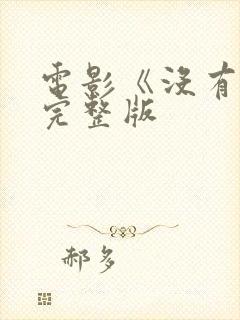 電影《沒有
完整版
郝多